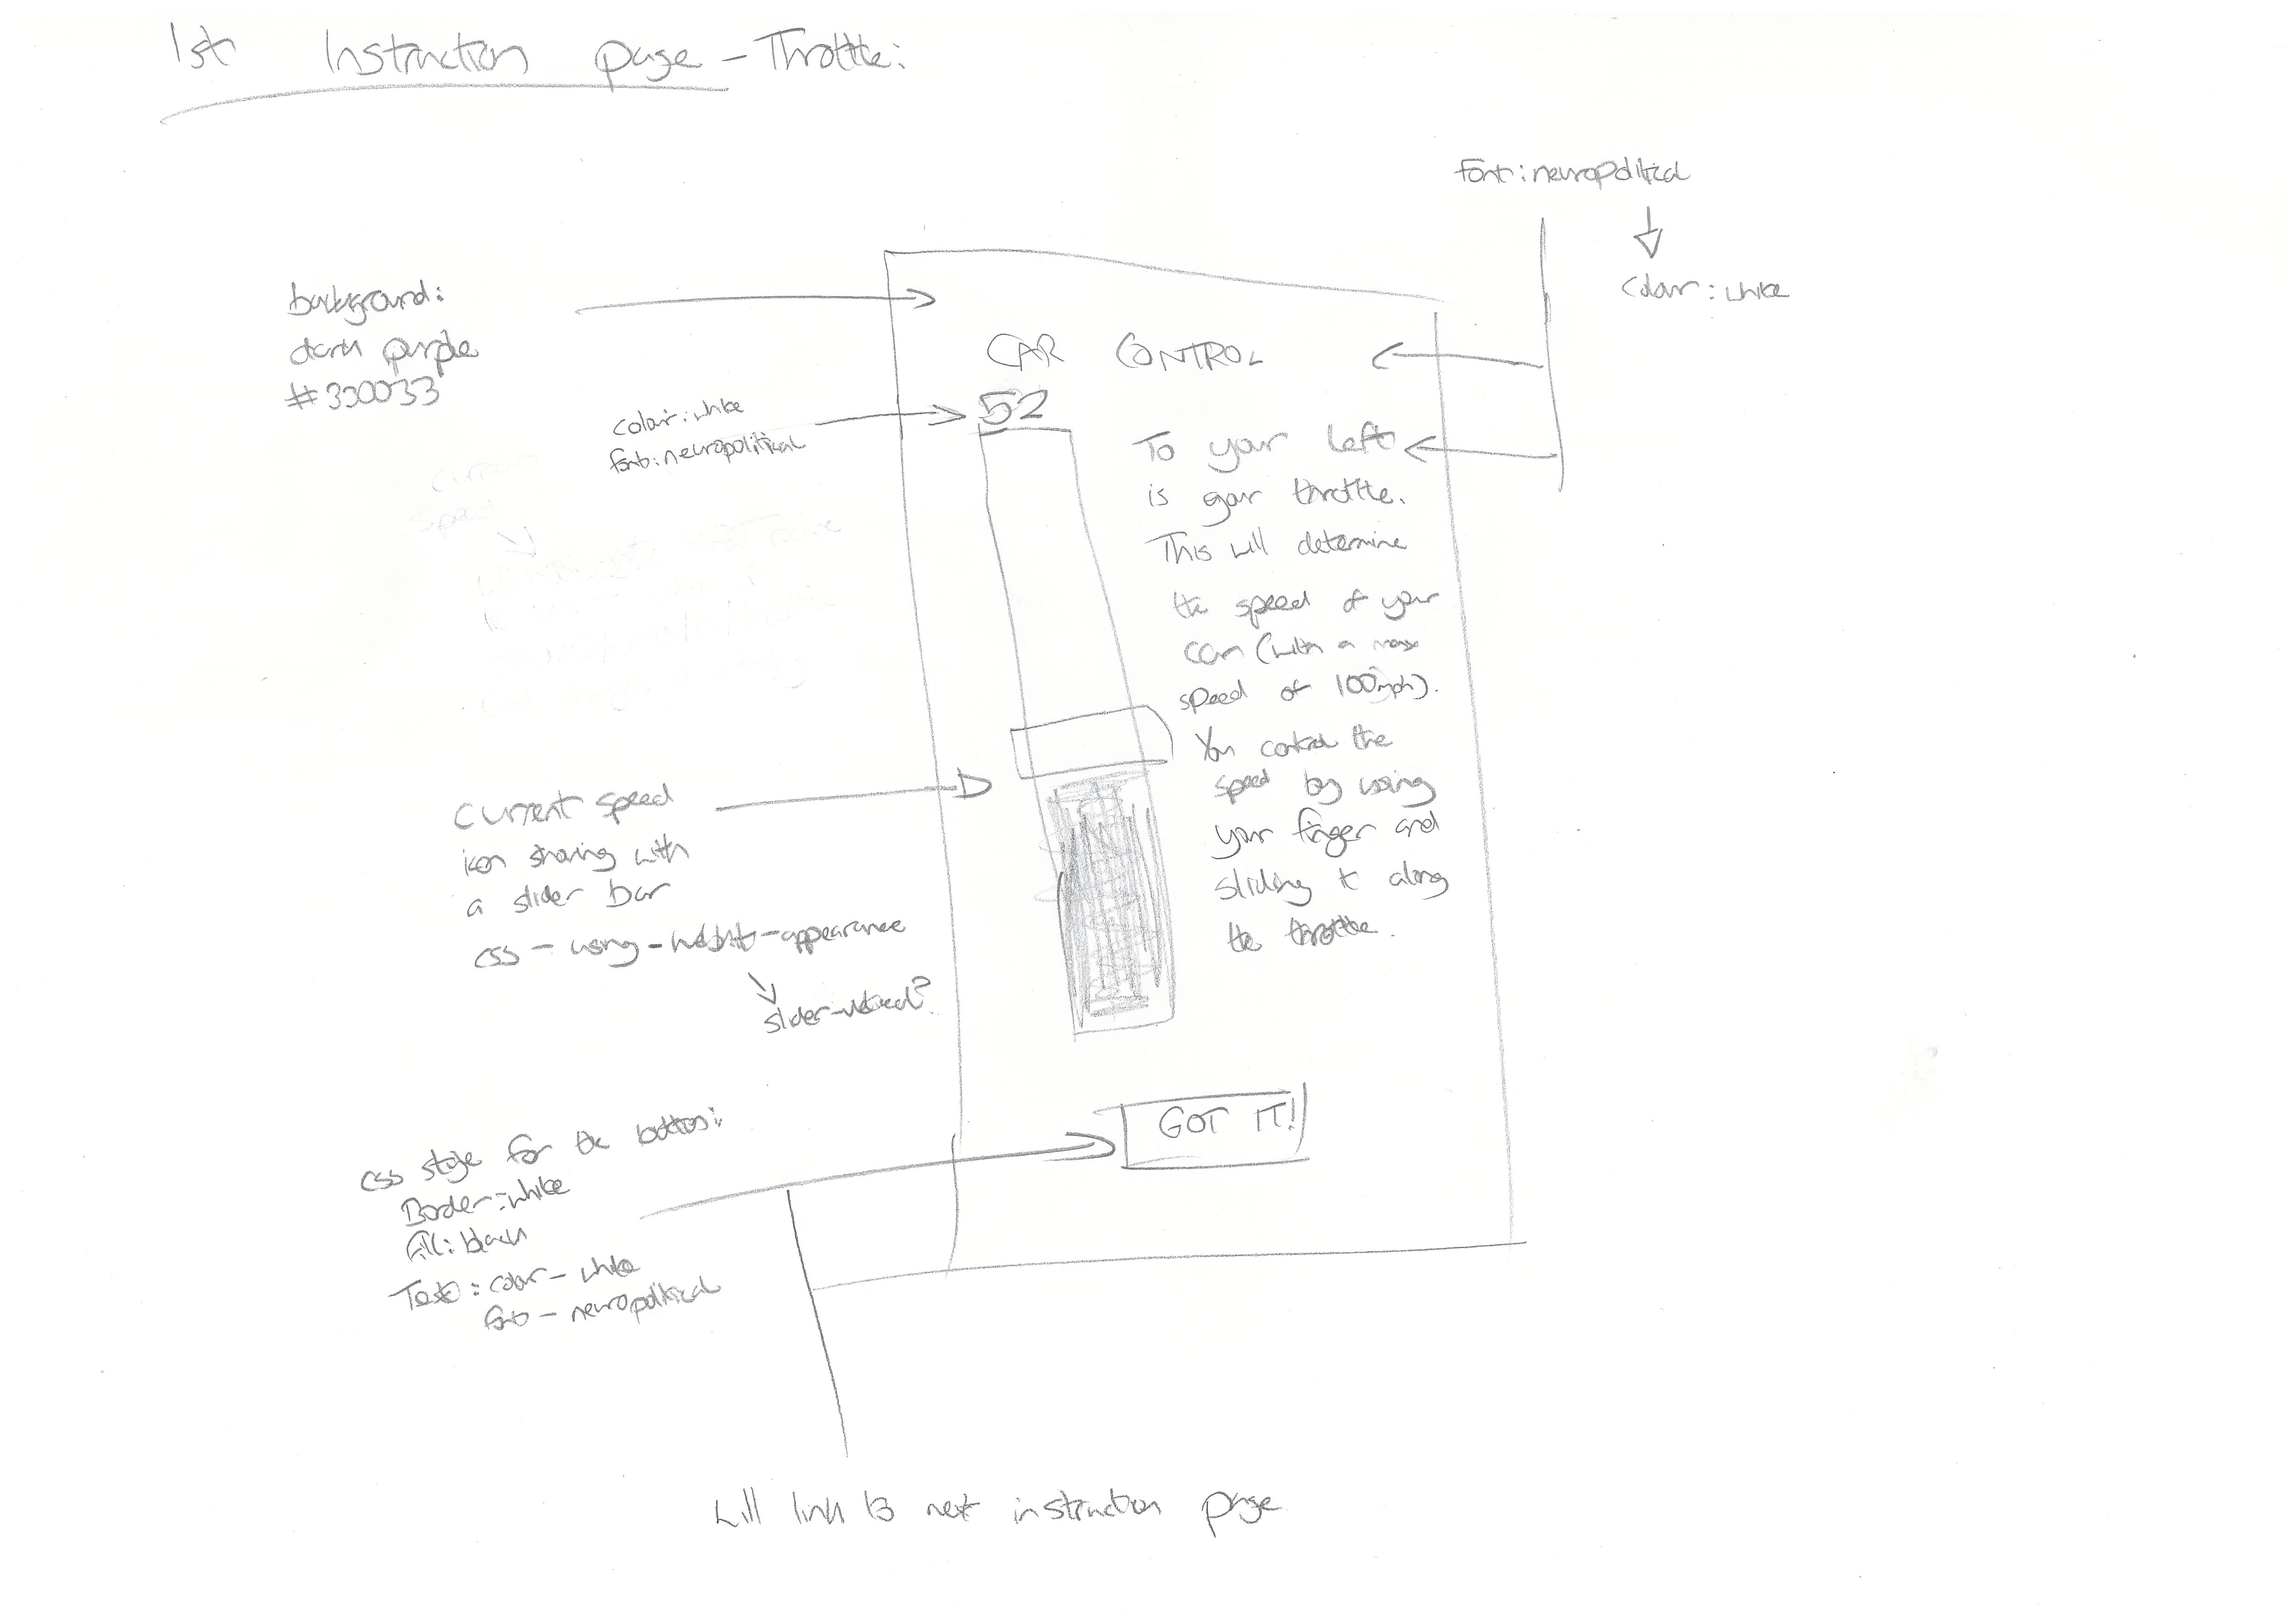 1st Instruction page - Throttle:
font: neuropolitical
colour: white
background:
dark purple
#330033
CAR CONTROL
colour: white
font: neuropolitical
52
To your left
is your throttle.
This will determine
the speed of your
car (with a max
speed of 100mph).
You control the
speed by using
your finger and
sliding it along
the throttle.
current speed
icon sharing with
a slider bar
css - using - webkit - appearance
slider-vertical?
GOT IT!
css style for the button:
Border: white
fill: black
Text: colour - white
font - neuropolitical
will link to next instruction page